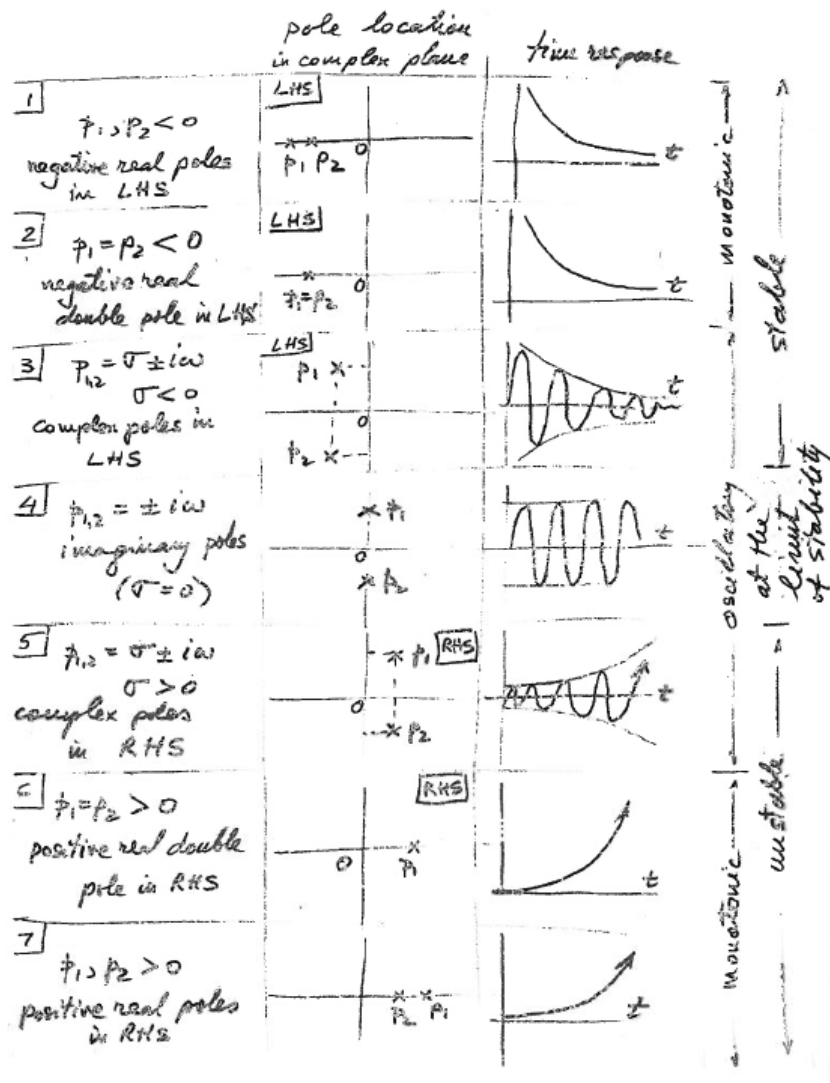 pole location
in complex plane
time response
1
p₁, p₂ < 0
negative real poles
in LHS
LHS
p₁ p₂
0
t
2
p₁ = p₂ < 0
negative real
double pole in LHS
LHS
p₁=p₂
0
t
3
p₁,₂ = σ ± iω
σ < 0
complex poles in
LHS
LHS
p₁
0
p₂
t
4
p₁,₂ = ± iω
imaginary poles
(σ = 0)
p₁
0
p₂
t
5
p₁,₂ = σ ± iω
σ > 0
complex poles
in RHS
RHS
p₁
0
p₂
t
6
p₁ = p₂ > 0
positive real double
pole in RHS
RHS
0
p₁
t
7
p₁, p₂ > 0
positive real poles
in RHS
p₂ p₁
t
monotonic
oscillatory
monotonic
stable
at the
limit
of stability
unstable